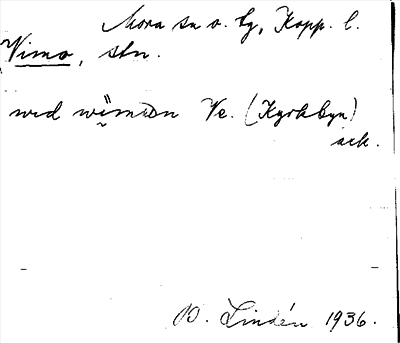 Mora sn o. tg, Kopp. l.
Vimo, stn.
wid wimon Ve. (Kyrkbyn)
ack.
B. Lindén 1936.